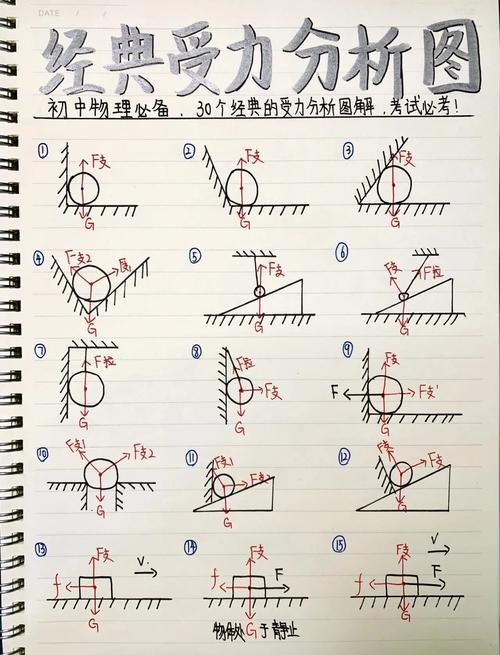 DATE / /
经典受力分析图
初中物理必备，30个经典的受力分析图解，考试必考！
① F支 G
② F支 G
③ F支 G
④ F支2 G
⑤ F支 G
⑥ F支 F拉 G
⑦ F拉 G
⑧ F拉 F支 G
⑨ F支 F F支' G
⑩ F支1 F支2 G
⑪ F支1 F支2 G
⑫ F支 F支 G
⑬ F支 V f G
⑭ F支 f F G
⑮ F支 V f F G
物体处于静止